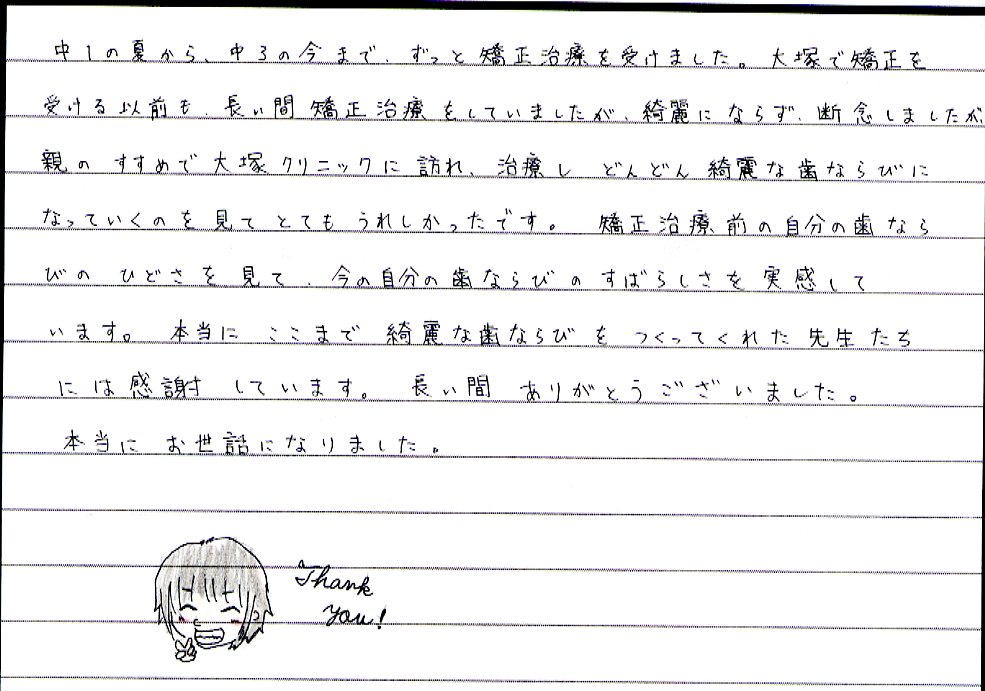 中1の夏から、中3の今まで、ずっと矯正治療を受けました。大塚で矯正を
受ける以前も、長い間矯正治療をしていましたが、綺麗にならず、断念しましたが
親のすすめで大塚クリニックに訪れ、治療しどんどん綺麗な歯ならびに
なっていくのを見てとてもうれしかったです。矯正治療前の自分の歯なら
びのひどさを見て、今の自分の歯ならびのすばらしさを実感して
います。本当にここまで綺麗な歯ならびをつくってくれた先生たち
には感謝しています。長い間ありがとうございました。
本当にお世話になりました。
Thank
You!